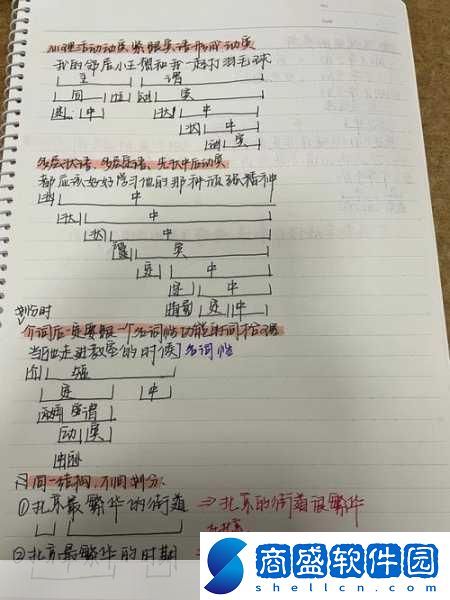 心理活动动宾紧跟宾语形成动宾
我的邻居小王想和我一起打羽毛球
主 谓
同位 述 宾
定 中 状 中
状 中
述 宾
多层状语、多层定语、先状中后动宾
都应该好好学习他的那种顽强精神
状 中
状 中
状 中
述 宾
定 中
定 中
定 中
划分时
介词后一定要跟一个名词性功能的词
当他走进教室的时候 名词性
介
定 中
主谓
动宾
同一结构,不同划分
①北京最繁华的街道 ⇒北京的街道很繁华
②北京最繁华的时期
商盛软件园
shellcn.com